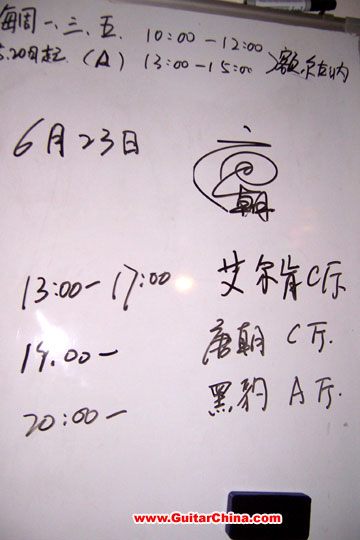 每周一、三、五. 10:00—12:00
5.20日起 (A) 13:00—15:00
6月23日
朝
13:00—17:00 艾尔肯C厅
19.00— 唐朝 C厅.
20:00— 黑豹 A厅.
www.GuitarChina.com